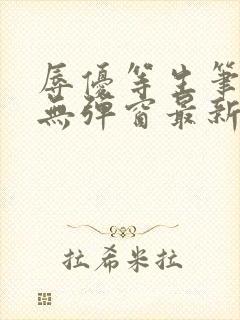 辱優等生筆
無彈窗最新
拉希米拉